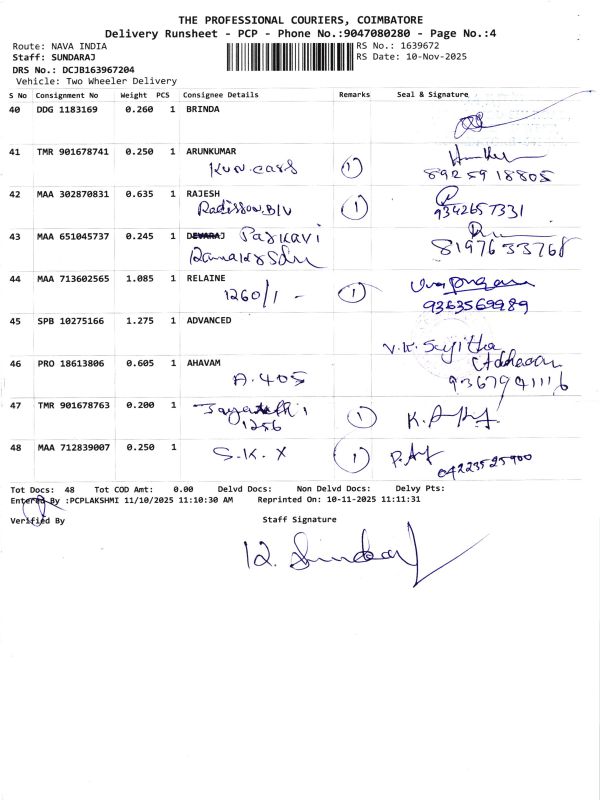 THE PROFESSIONAL COURIERS, COIMBATORE
Delivery Runsheet - PCP - Phone No.:9047080280 - Page No.:4
Route: NAVA INDIA RS No.: 1639672
Staff: SUNDARAJ RS Date: 10-Nov-2025
DRS No.: DCJB163967204
Vehicle: Two Wheeler Delivery
S No Consignment No Weight PCS Consignee Details Remarks Seal & Signature
40 DDG 1183169 0.260 1 BRINDA
41 TMR 901678741 0.250 1 ARUNKUMAR
KUN.cars 1 8925918805
42 MAA 302870831 0.635 1 RAJESH
Radisson.BLU 1 9342657331
43 MAA 651045737 0.245 1 DEVARAJ
8197633768
44 MAA 713602565 1.085 1 RELAINE
1260/1 - 1 9363569989
45 SPB 10275166 1.275 1 ADVANCED
V.K. Sujitha
46 PRO 18613806 0.605 1 AHAVAM
A.405 9367941116
47 TMR 901678763 0.200 1 1
1256
48 MAA 712839007 0.250 1 S.K. X 1
04223525900
Tot Docs: 48 Tot COD Amt: 0.00 Delvd Docs: Non Delvd Docs: Delvy Pts:
Entered By :PCPLAKSHMI 11/10/2025 11:10:30 AM Reprinted On: 10-11-2025 11:11:31
Verified By Staff Signature